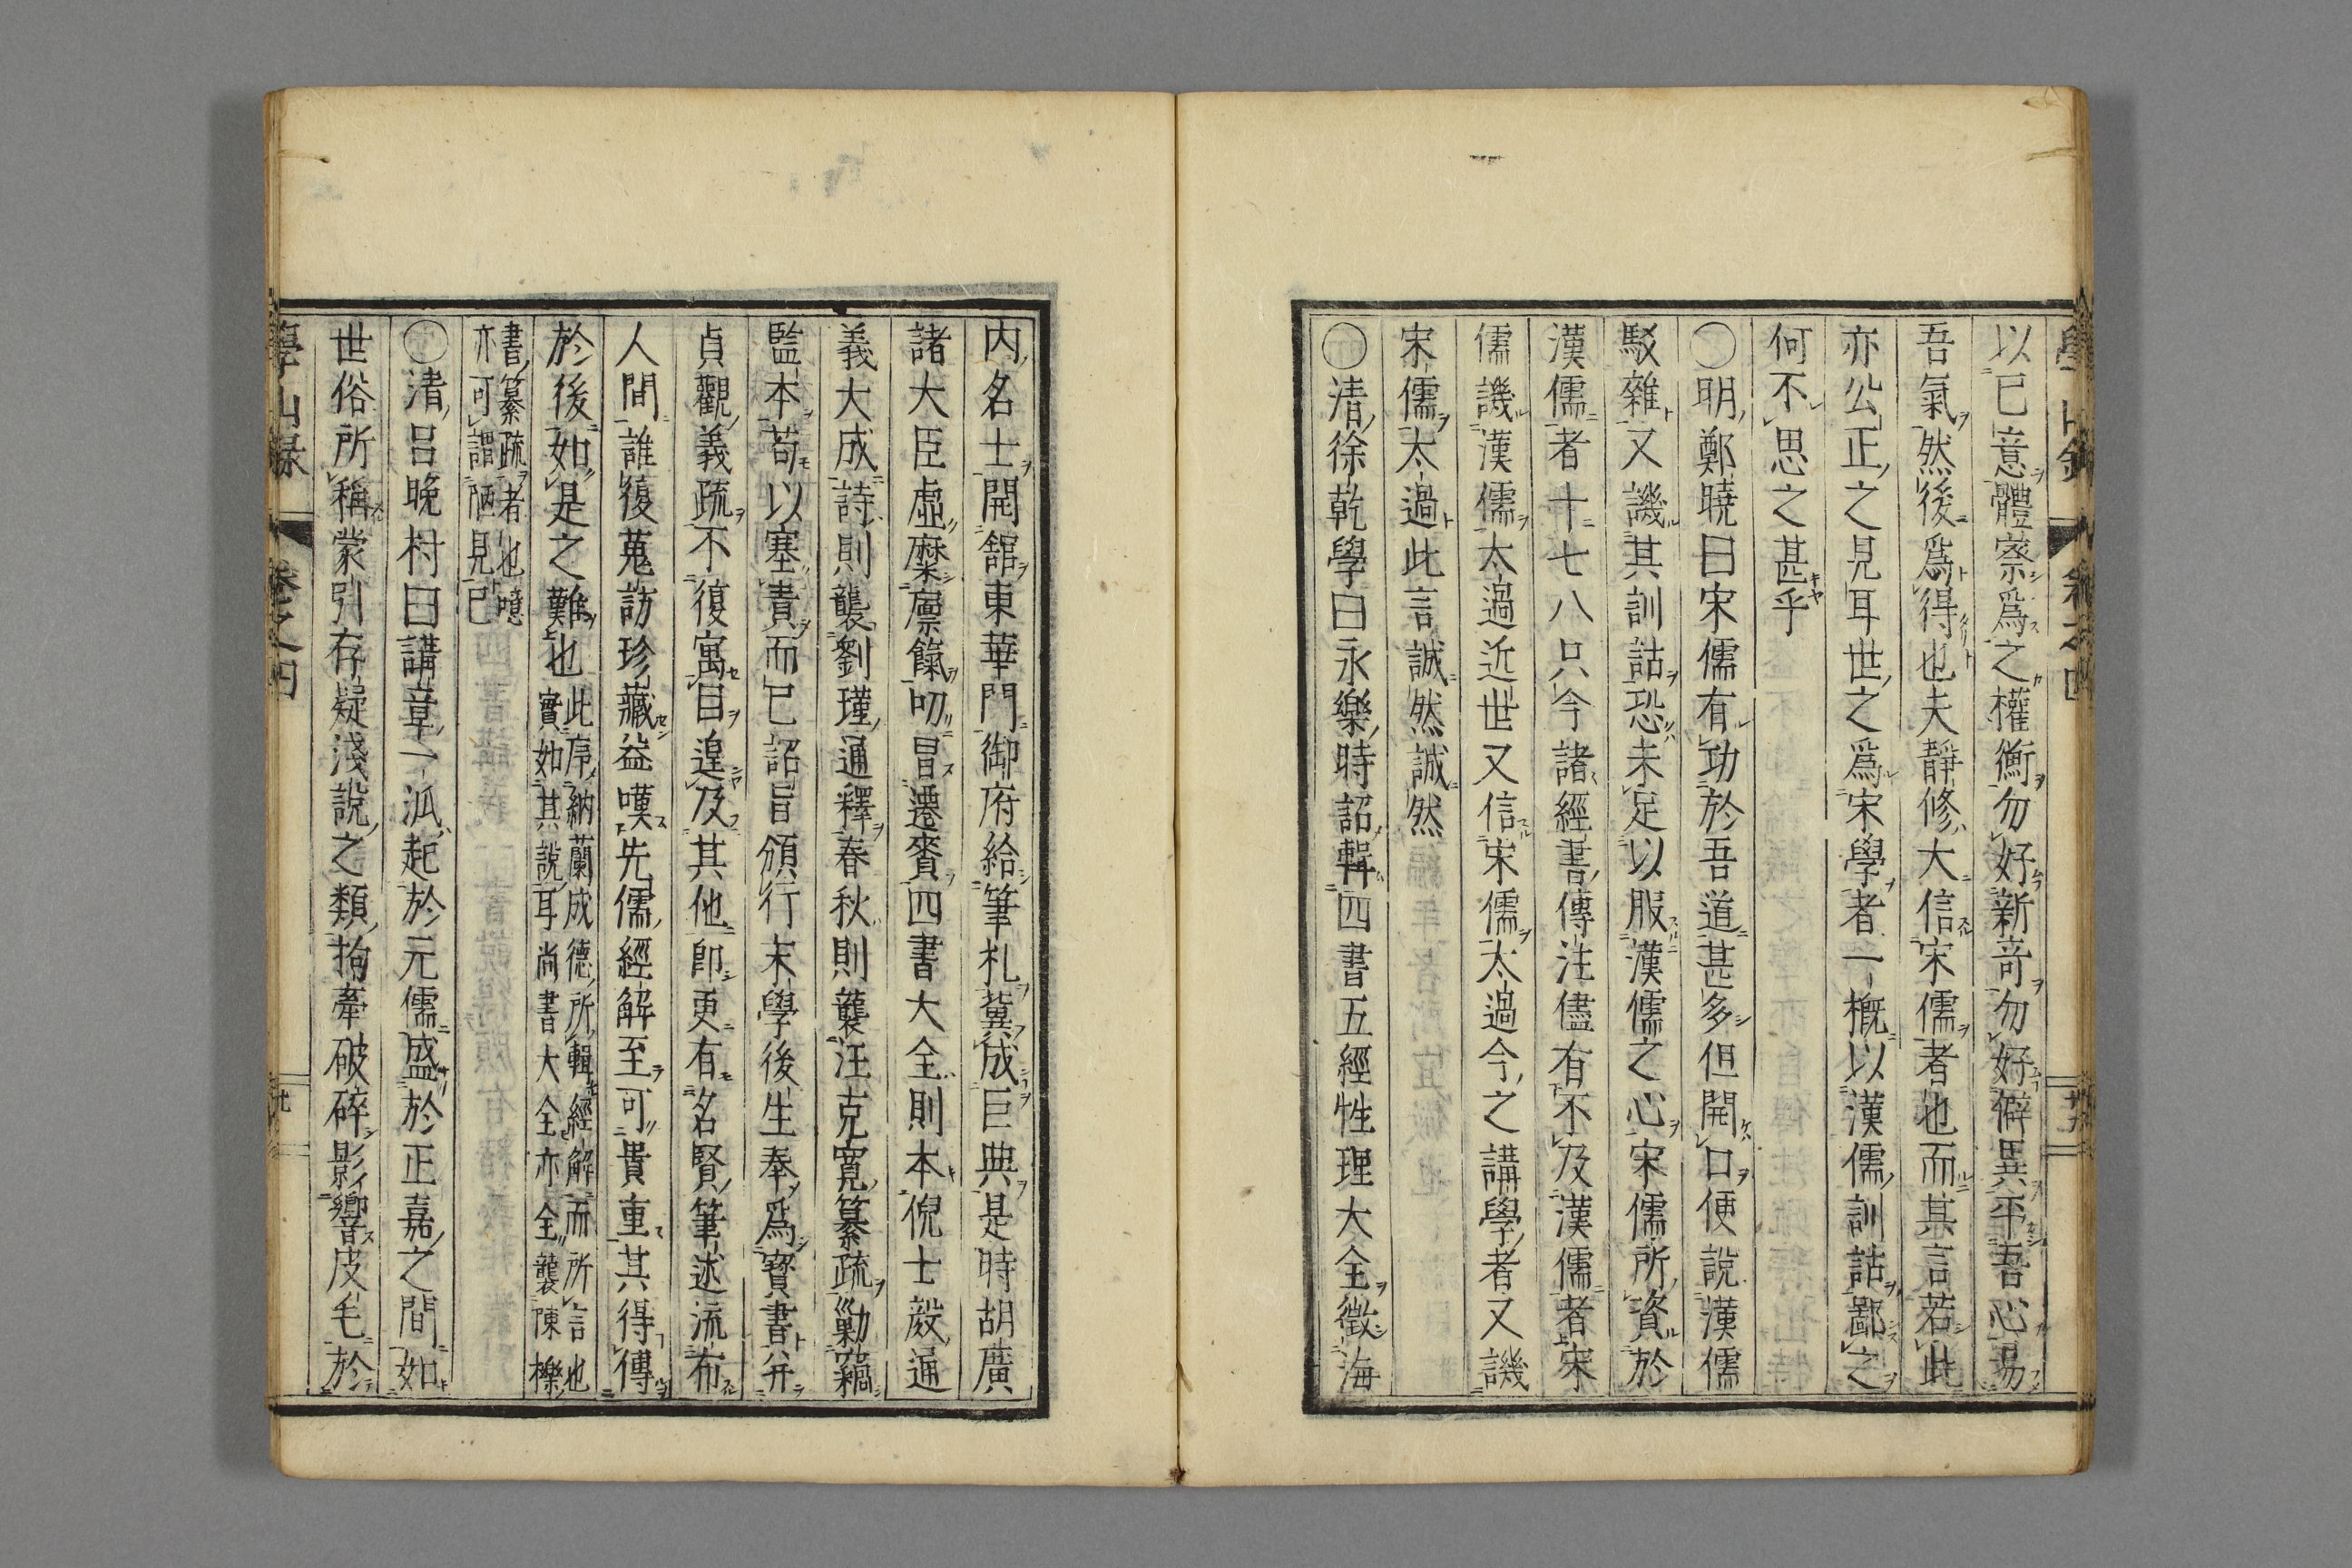 以已意體察爲之權衡勿好新奇勿好僻異平吾心易
吾氣然後爲得也夫靜修大信宋儒者也而其言若此
亦公正之見耳世之爲宋學者一概以漢儒訓詁鄙之
何不思之甚乎
〇明鄭曉曰宋儒有功於吾道甚多但開口便説漢儒
駁雜又譏其訓詁恐未足以服漢儒之心宋儒所資於
漢儒者十七八只今諸經書傳注儘有不及漢儒者宋
儒譏漢儒太過近世又信宋儒太過今之講學者又譏
宋儒太過此言誠然誠然
〇清徐乾學曰永樂時詔輯四書五經性理大全徵海
內名士開舘東華門御府給筆札冀成巨典是時胡廣
諸大臣虛糜廪餼叨冒遷賚四書大全則本倪士毅通
義大成詩則襲劉瑾通釋春秋則襲汪克寬纂疏勦竊
監本苟以塞責而已詔旨頒行末學後生奉爲寶書并
貞觀義疏不復寓目遑及其他卽更有名賢筆述流布
人間誰復蒐訪珍藏益嘆先儒經解至可貴重其得傳
於後如是之難也此序納蘭成德所輯經解而所言也
實如其説耳尚書大全亦全襲陳櫟
書纂疏者也噫
亦可謂陋見已
〇清呂晚村曰講章一派起於元儒盛於正嘉之間如
世俗所稱蒙引存疑淺説之類拘牽破碎影響皮毛於
學山録 卷之四